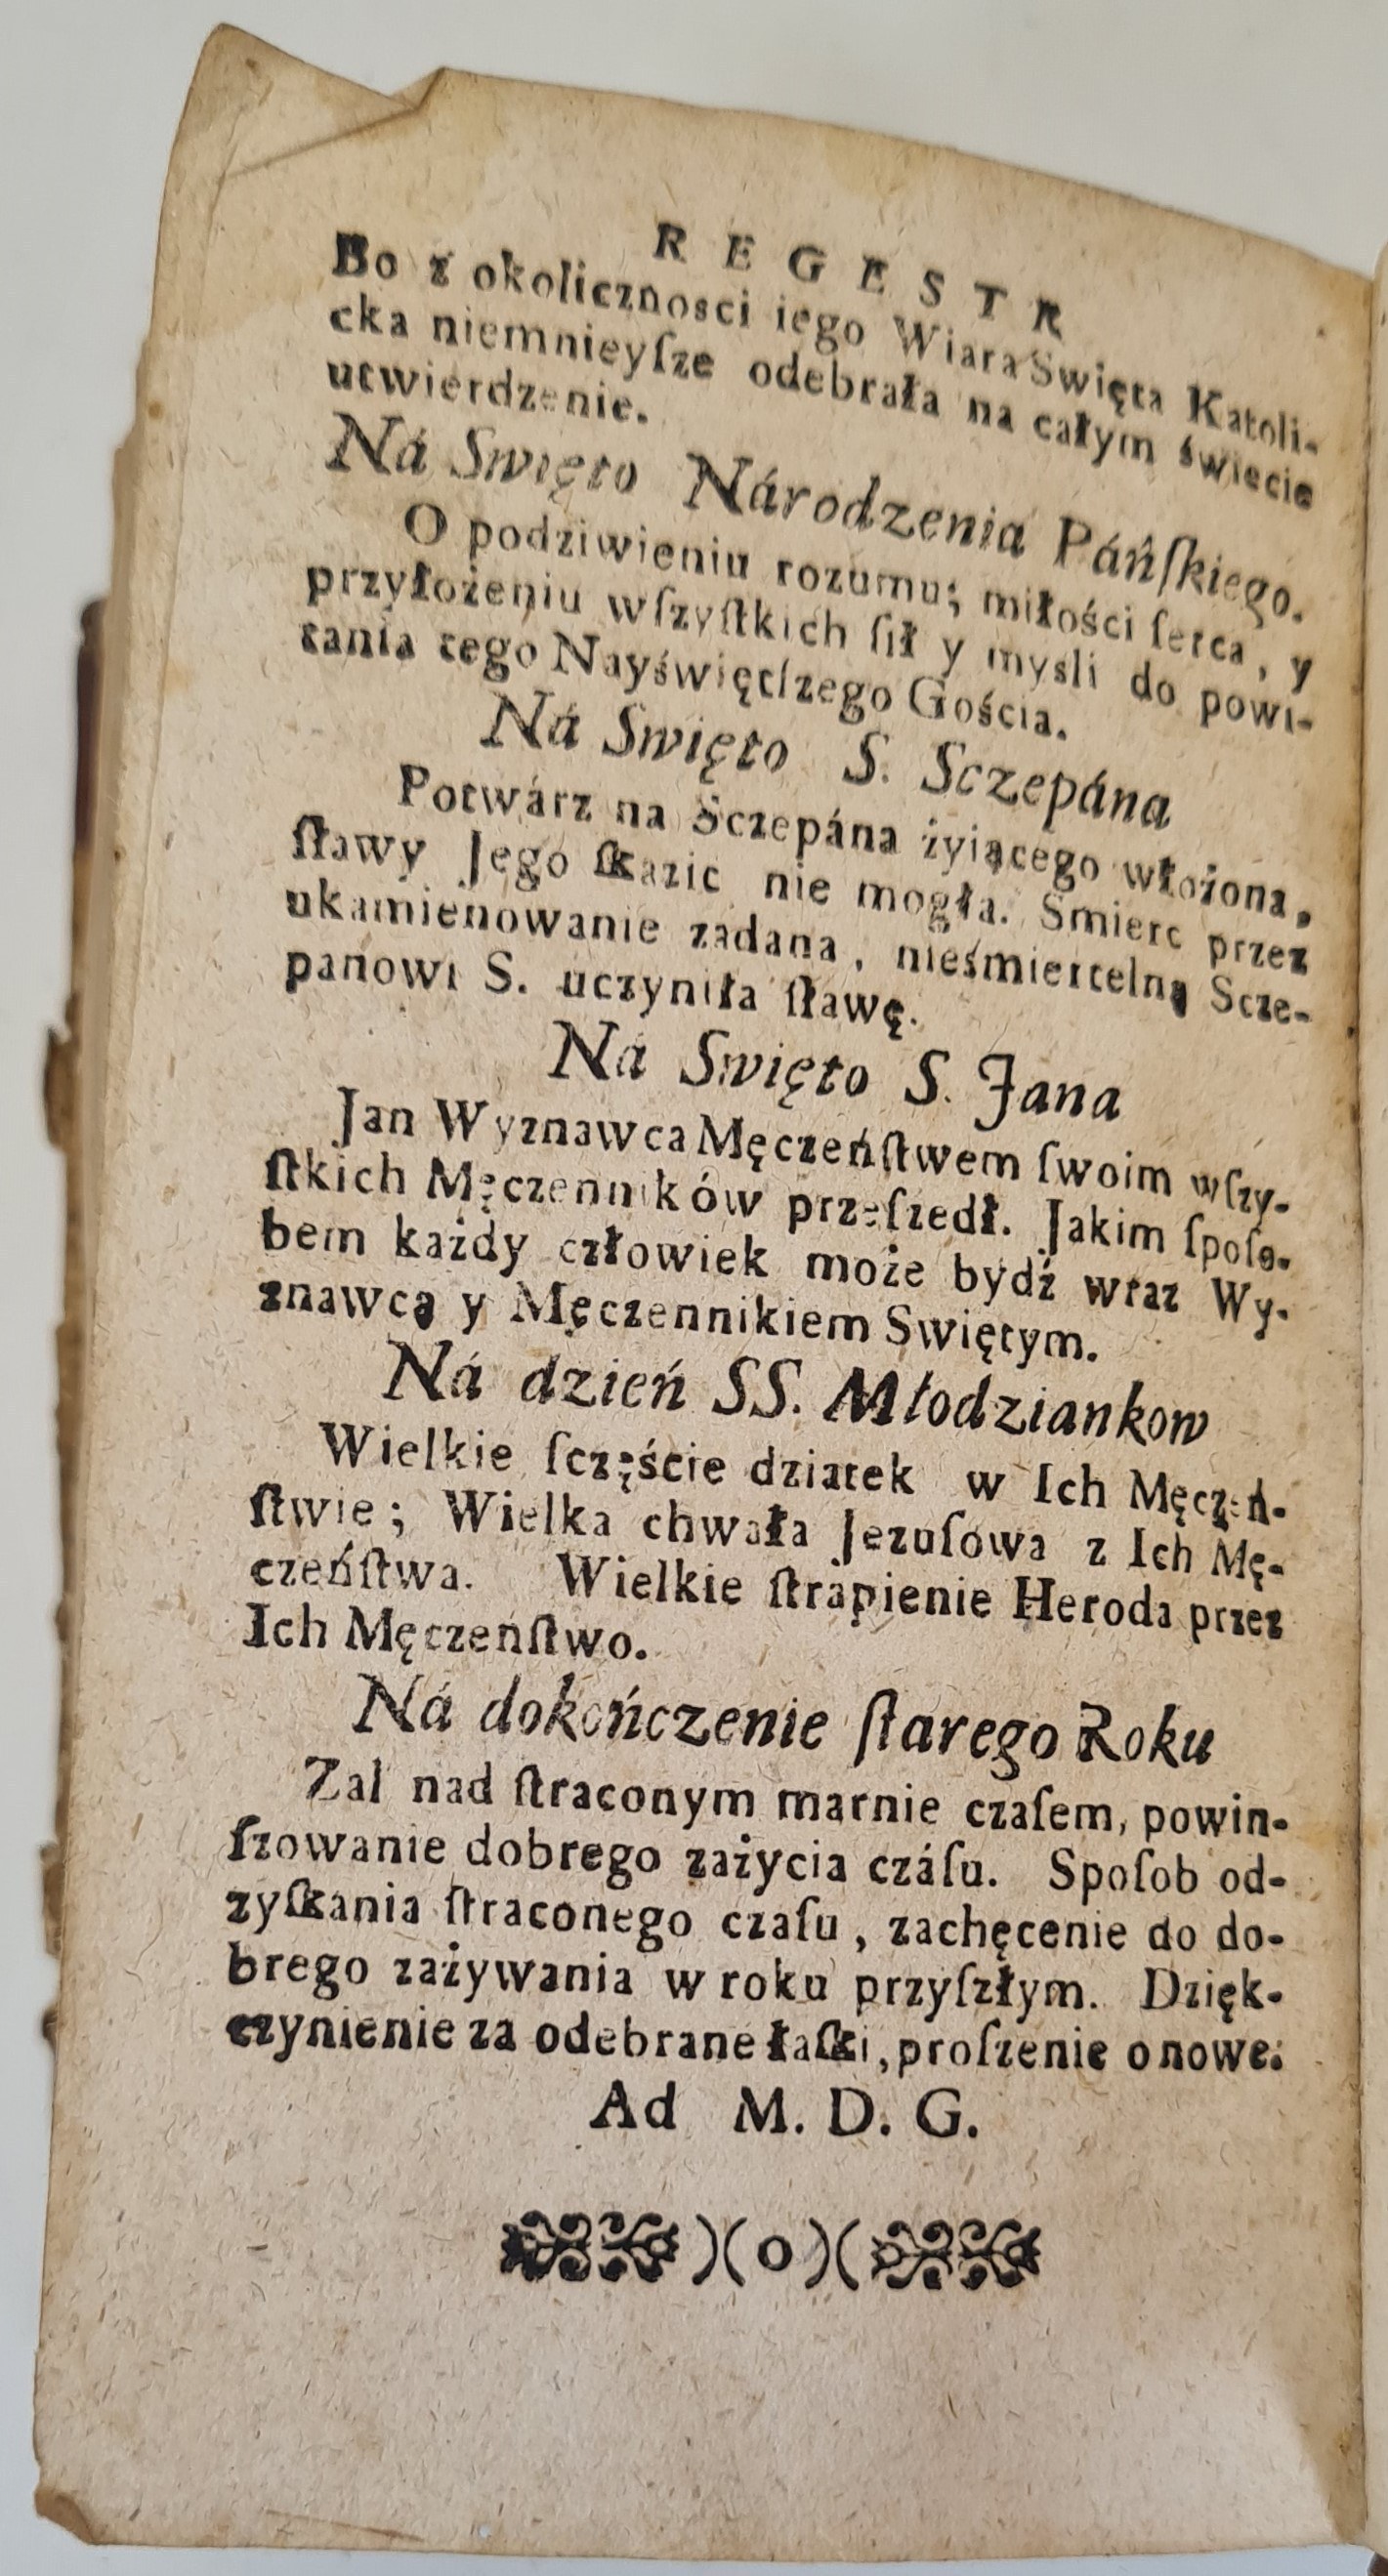 REGESTR
Bo z okolicznosci iego Wiara Swięta Katoli-
cka niemnieyſze odebrała na całym świecie
utwierdzenie.
Ná Swięto Národzenia Páńſkiego.
O podziwieniu rozumu; miłości ſerca, y
przyłożeniu wſzyſtkich ſił y myśli do powi-
tania tego Nayświętſzego Gościa.
Ná Swięto S. Sczepána
Potwárz na Sczepána żyiącego włożona,
ſławy Jego ſkazic nie mogła. Smierc przez
ukamienowanie zadana, nieśmiertelną Scze-
panowi S. uczyniła ſławę.
Ná Swięto S. Jana
Jan Wyznawca Męczeńſtwem ſwoim wſzy-
ſtkich Męczenników przeſzedł. Jakim ſpoſo-
bem każdy człowiek może bydź wraz Wy-
znawcą y Męczennikiem Swiętym.
Ná dzień SS. Młodziankow
Wielkie ſczęście dziatek w Ich Męczeń-
ſtwie; Wielka chwała Jezuſowa z Ich Mę-
czeńſtwa. Wielkie ſtrapienie Heroda przez
Ich Męczeńſtwo.
Ná dokończenie ſtarego Roku
Zal nad ſtraconym marnie czaſem, powin-
ſzowanie dobrego zażycia czáſu. Spoſob od-
zyſkania ſtraconego czaſu, zachęcenie do do-
brego zażywania w roku przyſzłym. Dzięk-
czynienie za odebrane łaſki, proſzenie o nowe.
Ad M. D. G.
)(o)(